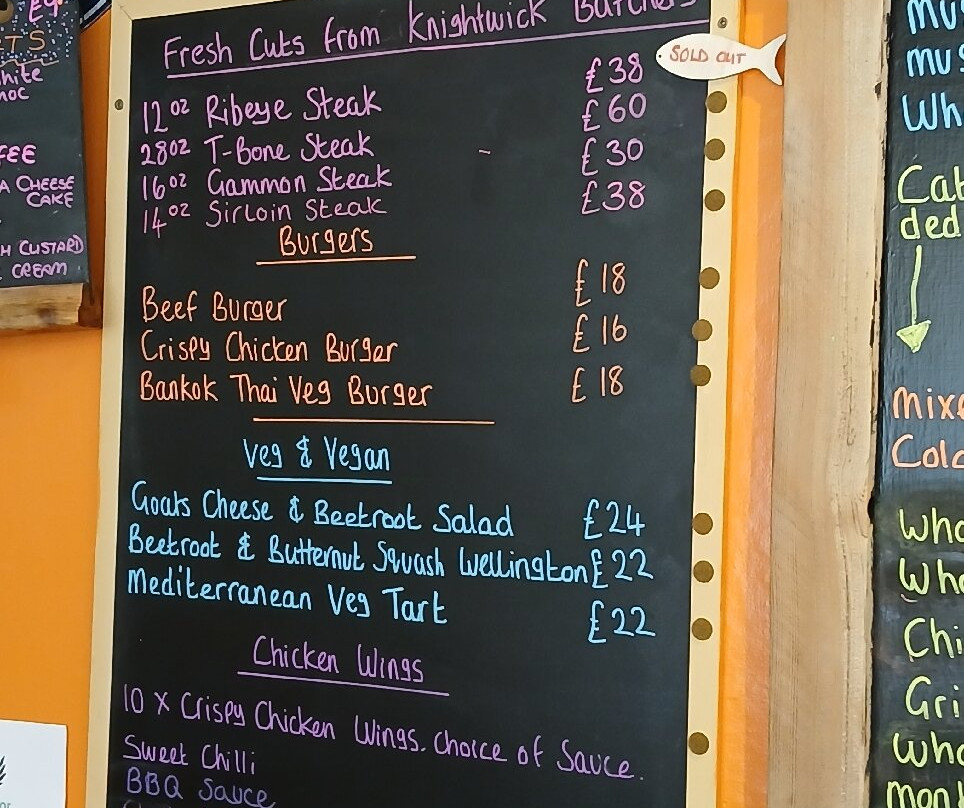 Fresh Cuts from Knightwick Butchers
SOLD OUT
12oz Ribeye Steak £38
28oz T-Bone Steak - £60
16oz Gammon Steak £30
14oz Sirloin Steak £38
Burgers
Beef Burger £18
Crispy Chicken Burger £16
Bankok Thai Veg Burger £18
Veg & Vegan
Goats Cheese & Beetroot Salad £24
Beetroot & Butternut Squash Wellington £22
Mediterranean Veg Tart £22
Chicken Wings
10 x Crispy Chicken Wings. Choice of Sauce.
Sweet Chilli
BBQ Sauce
A CHEESE
CAKE
CUSTARD
CREAM